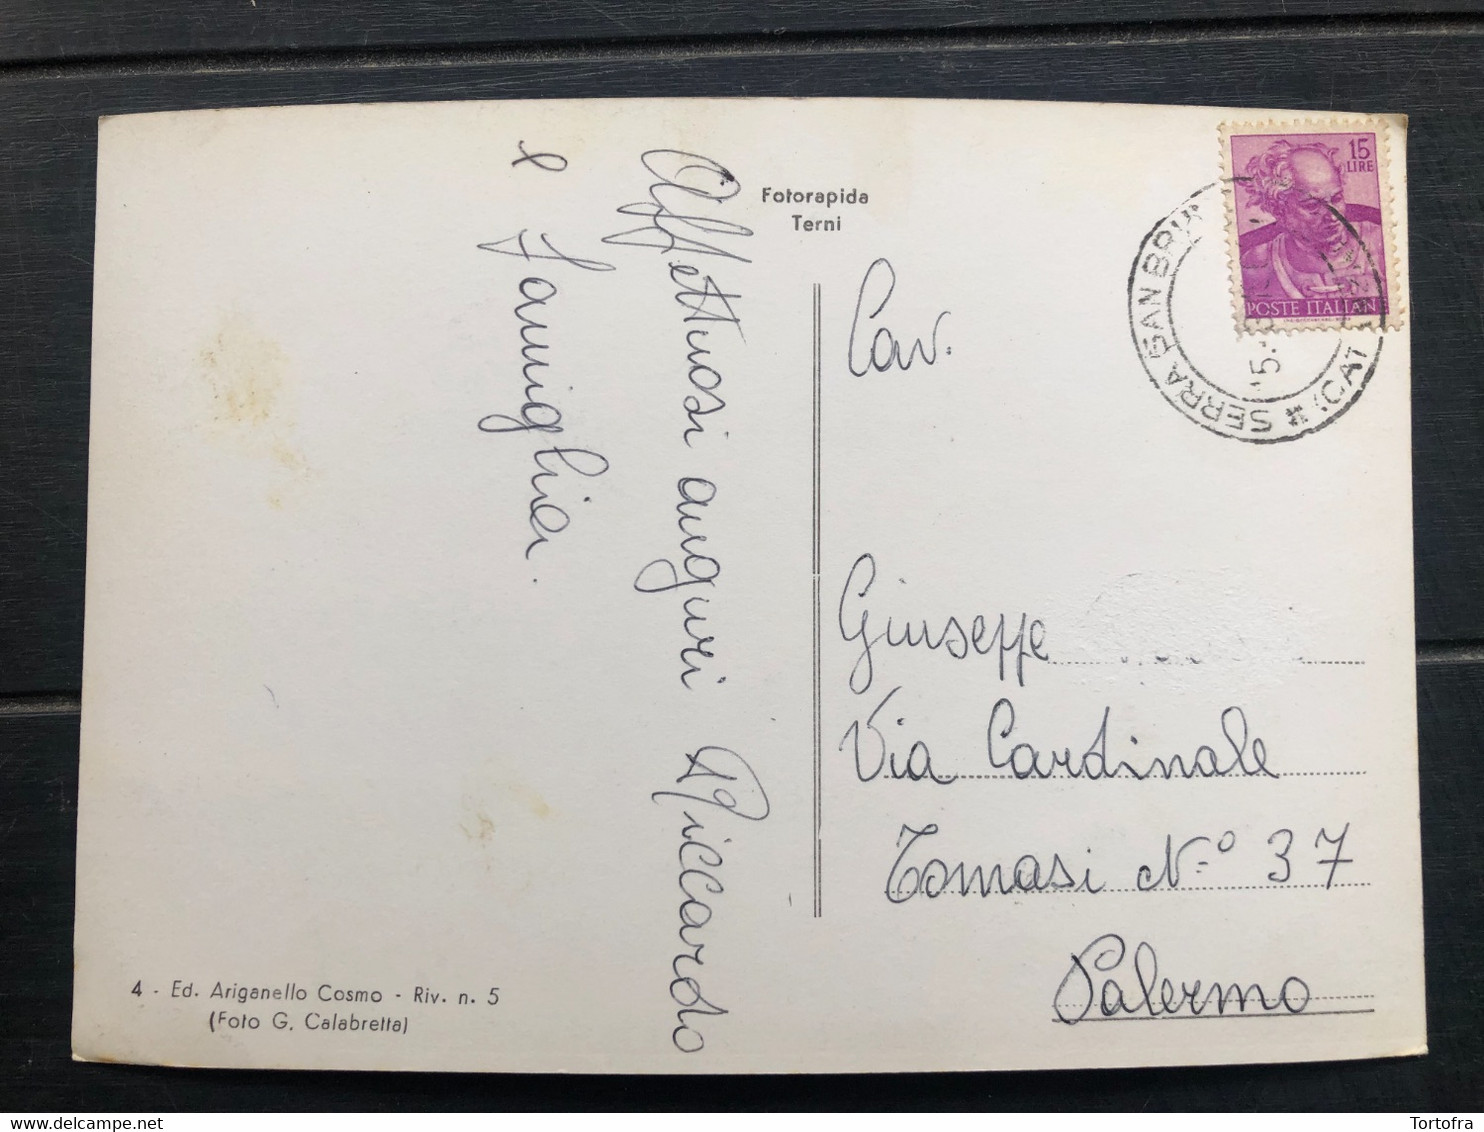 Affettuosi auguri Riccardo
e Famiglia.
Fotorapida
Terni
15
LIRE
POSTE ITALIANE
SERRA SAN BRUN
(CAT
Cav.
Giuseppe
Via Cardinale
Tomasi N.º 37
Palermo
4 - Ed. Ariganello Cosmo - Riv. n. 5
(Foto G. Calabretta)
Tortofra